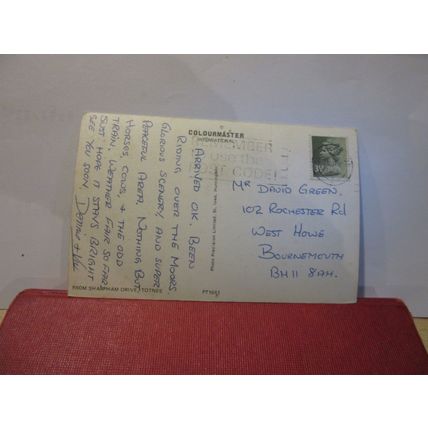 ARRIVED O.K. BEEN
RIDING OVER THE MOORS
GLORIOUS SCENERY AND SUPER
PEACEFUL AREA. NOTHING BUT
HORSES, COWS, & THE ODD
TRAIN. WEATHER FAIR SO FAR
JUST HOPE IT STAYS BRIGHT
SEE YOU SOON
FROM SHARPHAM DRIVE, TOTNES
COLOURMASTER
INTERNATIONAL
Photo Precision Limited, St. Ives, Huntingdon
REMEMBER
use the
POST CODE
MR DAVID GREEN.
102 ROCHESTER Rd
WEST HOWE
BOURNEMOUTH
BH11 8AH.